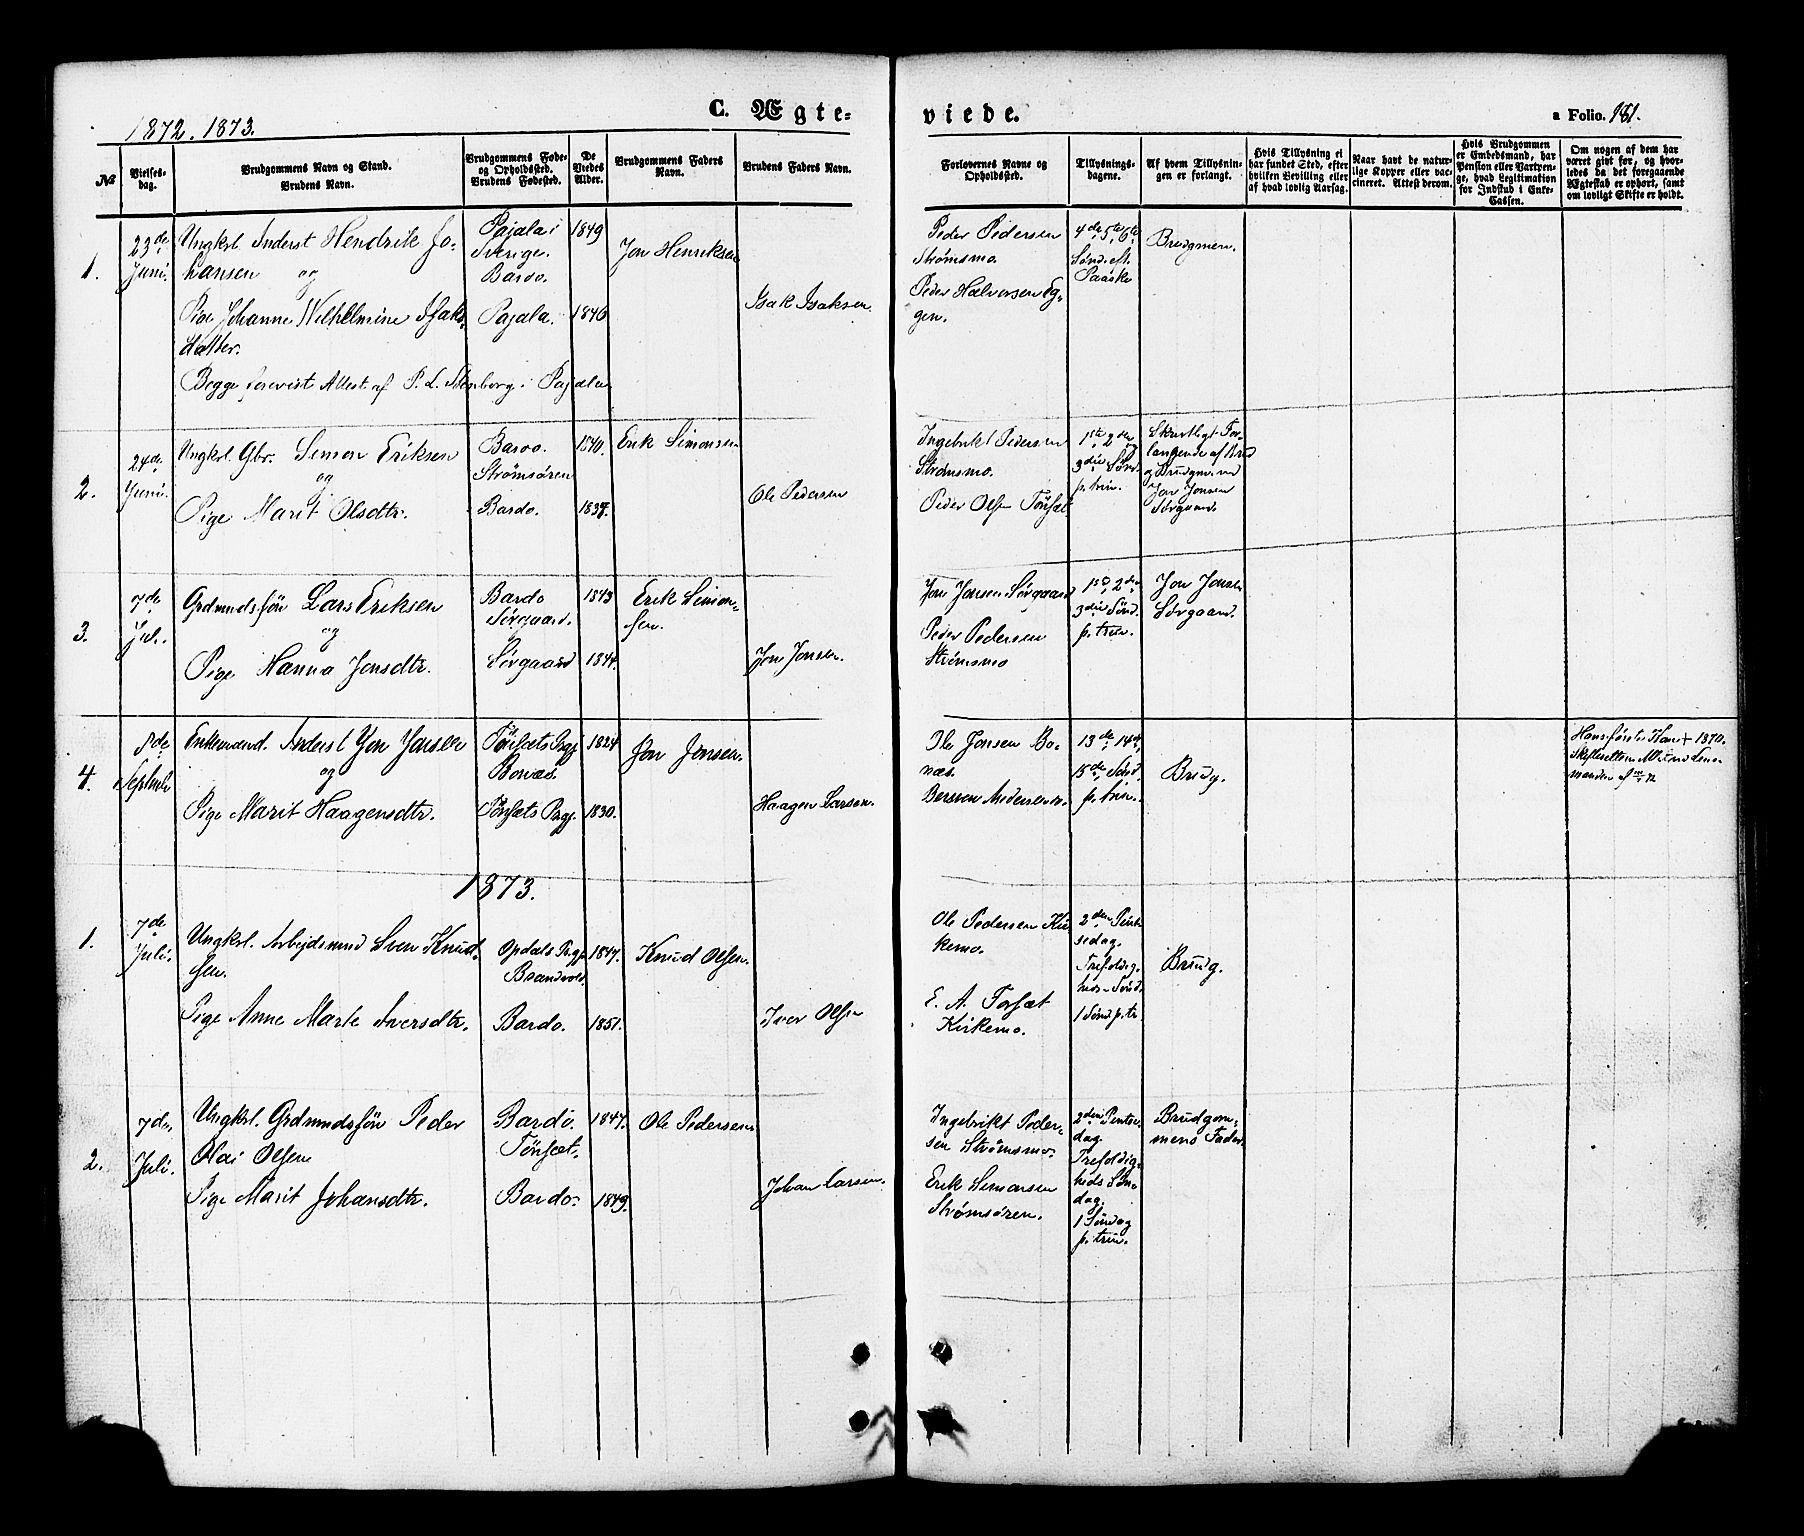 1872. 1873.
C. Ægte-
viede.
a Folio. 181.
No
Vielses-
dag.
Brudgommens Navn og Stand.
Brudens Navn.
Brudgommens Føde-
og Opholdssted.
Brudens Fødested.
De
Viedes
Alder.
Brudgommens Faders
Navn.
Brudens Faders Navn.
Forlovernes Navne og
Opholdssted.
Tillysnings-
dagene.
Af hvem Tillysnin-
gen er forlangt.
Hvis Tillysning ei
har fundet Sted, efter
hvilken Bevilling eller
af hvad lovlig Aarsag.
Naar havt de natur-
lige Kopper eller vac-
cineret. Attest derom.
Hvis Brudgommen
er Embedsmand, har
Pension eller Vartpen-
ge, hvad Legitimation
for Indskud i Enke-
Cassen.
Om nogen af dem har
været gift før, og hvor-
ledes da det foregaaende
Ægteskab er ophørt, samt
om lovligt Skifte er holdt.
1.
23de
Juni.
Ungkrl. Anderst Hendrik Jo-
hansen og
Pige Johanne Wilhelmine Isaks-
datter.
Begge forevist Attest af P. L. Stenborg i Pajala
Pajala i
Sverige.
Bardo.
Pajala.
1849
1846
Jon Henriksen
Isak Isaksen.
Peder Pedersen
Strømsmo.
Peder Halvorsen Eg-
gen.
4de, 5te, 6te
Sønd. eft.
Paaske
Brudgmen.
2.
24de
Juni.
Ungkrl. Gbr. Simon Eriksen
og
Pige Marit Olsdtr.
Bardo.
Strømsøren
Bardo.
1840.
1837.
Erik Simonsen
Ole Pedersen
Ingebrikt Pedersen
Strømsmo.
Peder Olsen Tønset
1ste 2den og
3die Sønd.
p. trin.
Skriftligt For-
langende af Brud
og Brudgm. ved
Jon Jonsen
Sørgaard.
3.
7de
Jul.
Grdmandssøn Lars Eriksen
og
Pige Hanna Jonsdtr.
Bardo
Sørgaard.
Sørgaard
1843
1844.
Erik Simon-
sen.
Jon Jonsen.
Jon Jonsen Sørgaard
Peder Pedersen
Strømsmo
1ste, 2den
3die Sønd.
p. trin.
Jon Jonsen
Sørgaard.
4.
8de
September
Enkemand. Anderst Jon Jonsen
og
Pige Marit Haagensdtr.
Tønsets Prgj.
Bonæs.
Tønsets Prgj.
1824
1830.
Jon Jonsen.
Haagen Larsen.
Ole Jonsen Bo-
næs.
13de, 14de,
15de Sønd.
p. trin.
Brudg.
Hans første Kone + 1870.
1873.
1.
7de
Juli.
Ungkrl. Arbejdsmand Sven Knud-
sen.
Pige Anne Marte Iversdtr.
Opdals Prgj.
Brandvold.
Bardo.
1847.
1851.
Knud Olsen.
Iver Olsen
Ole Pedersen Kir-
kemo.
E. A. Forset
Kirkemo.
2den Pint-
sedag.
Trefoldig-
heds-Sønd.
1 Sønd. p. tr.
Brudg.
2.
7de
Juli.
Ungkrl. Grdmandssøn Peder
Olai Olsen
Pige Marit Johansdtr.
Bardo.
Tønset.
Bardo.
1847.
1849.
Ole Pedersen
Johan Larsen.
Ingebrikt Peder-
sen Strømsmo.
Erik Simonsen
Strømsøren.
2den Pintse-
dag.
Trefoldig-
heds Søn-
dag.
1 Søndag
p. trin.
Brudgom-
mens Fader.